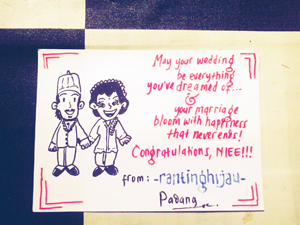 May your wedding
be everything
you've dreamed of...
&
your marriage
bloom with happiness
that never ends!
Congratulations, NIEE!!!
from: -rantinghijau-
Padang